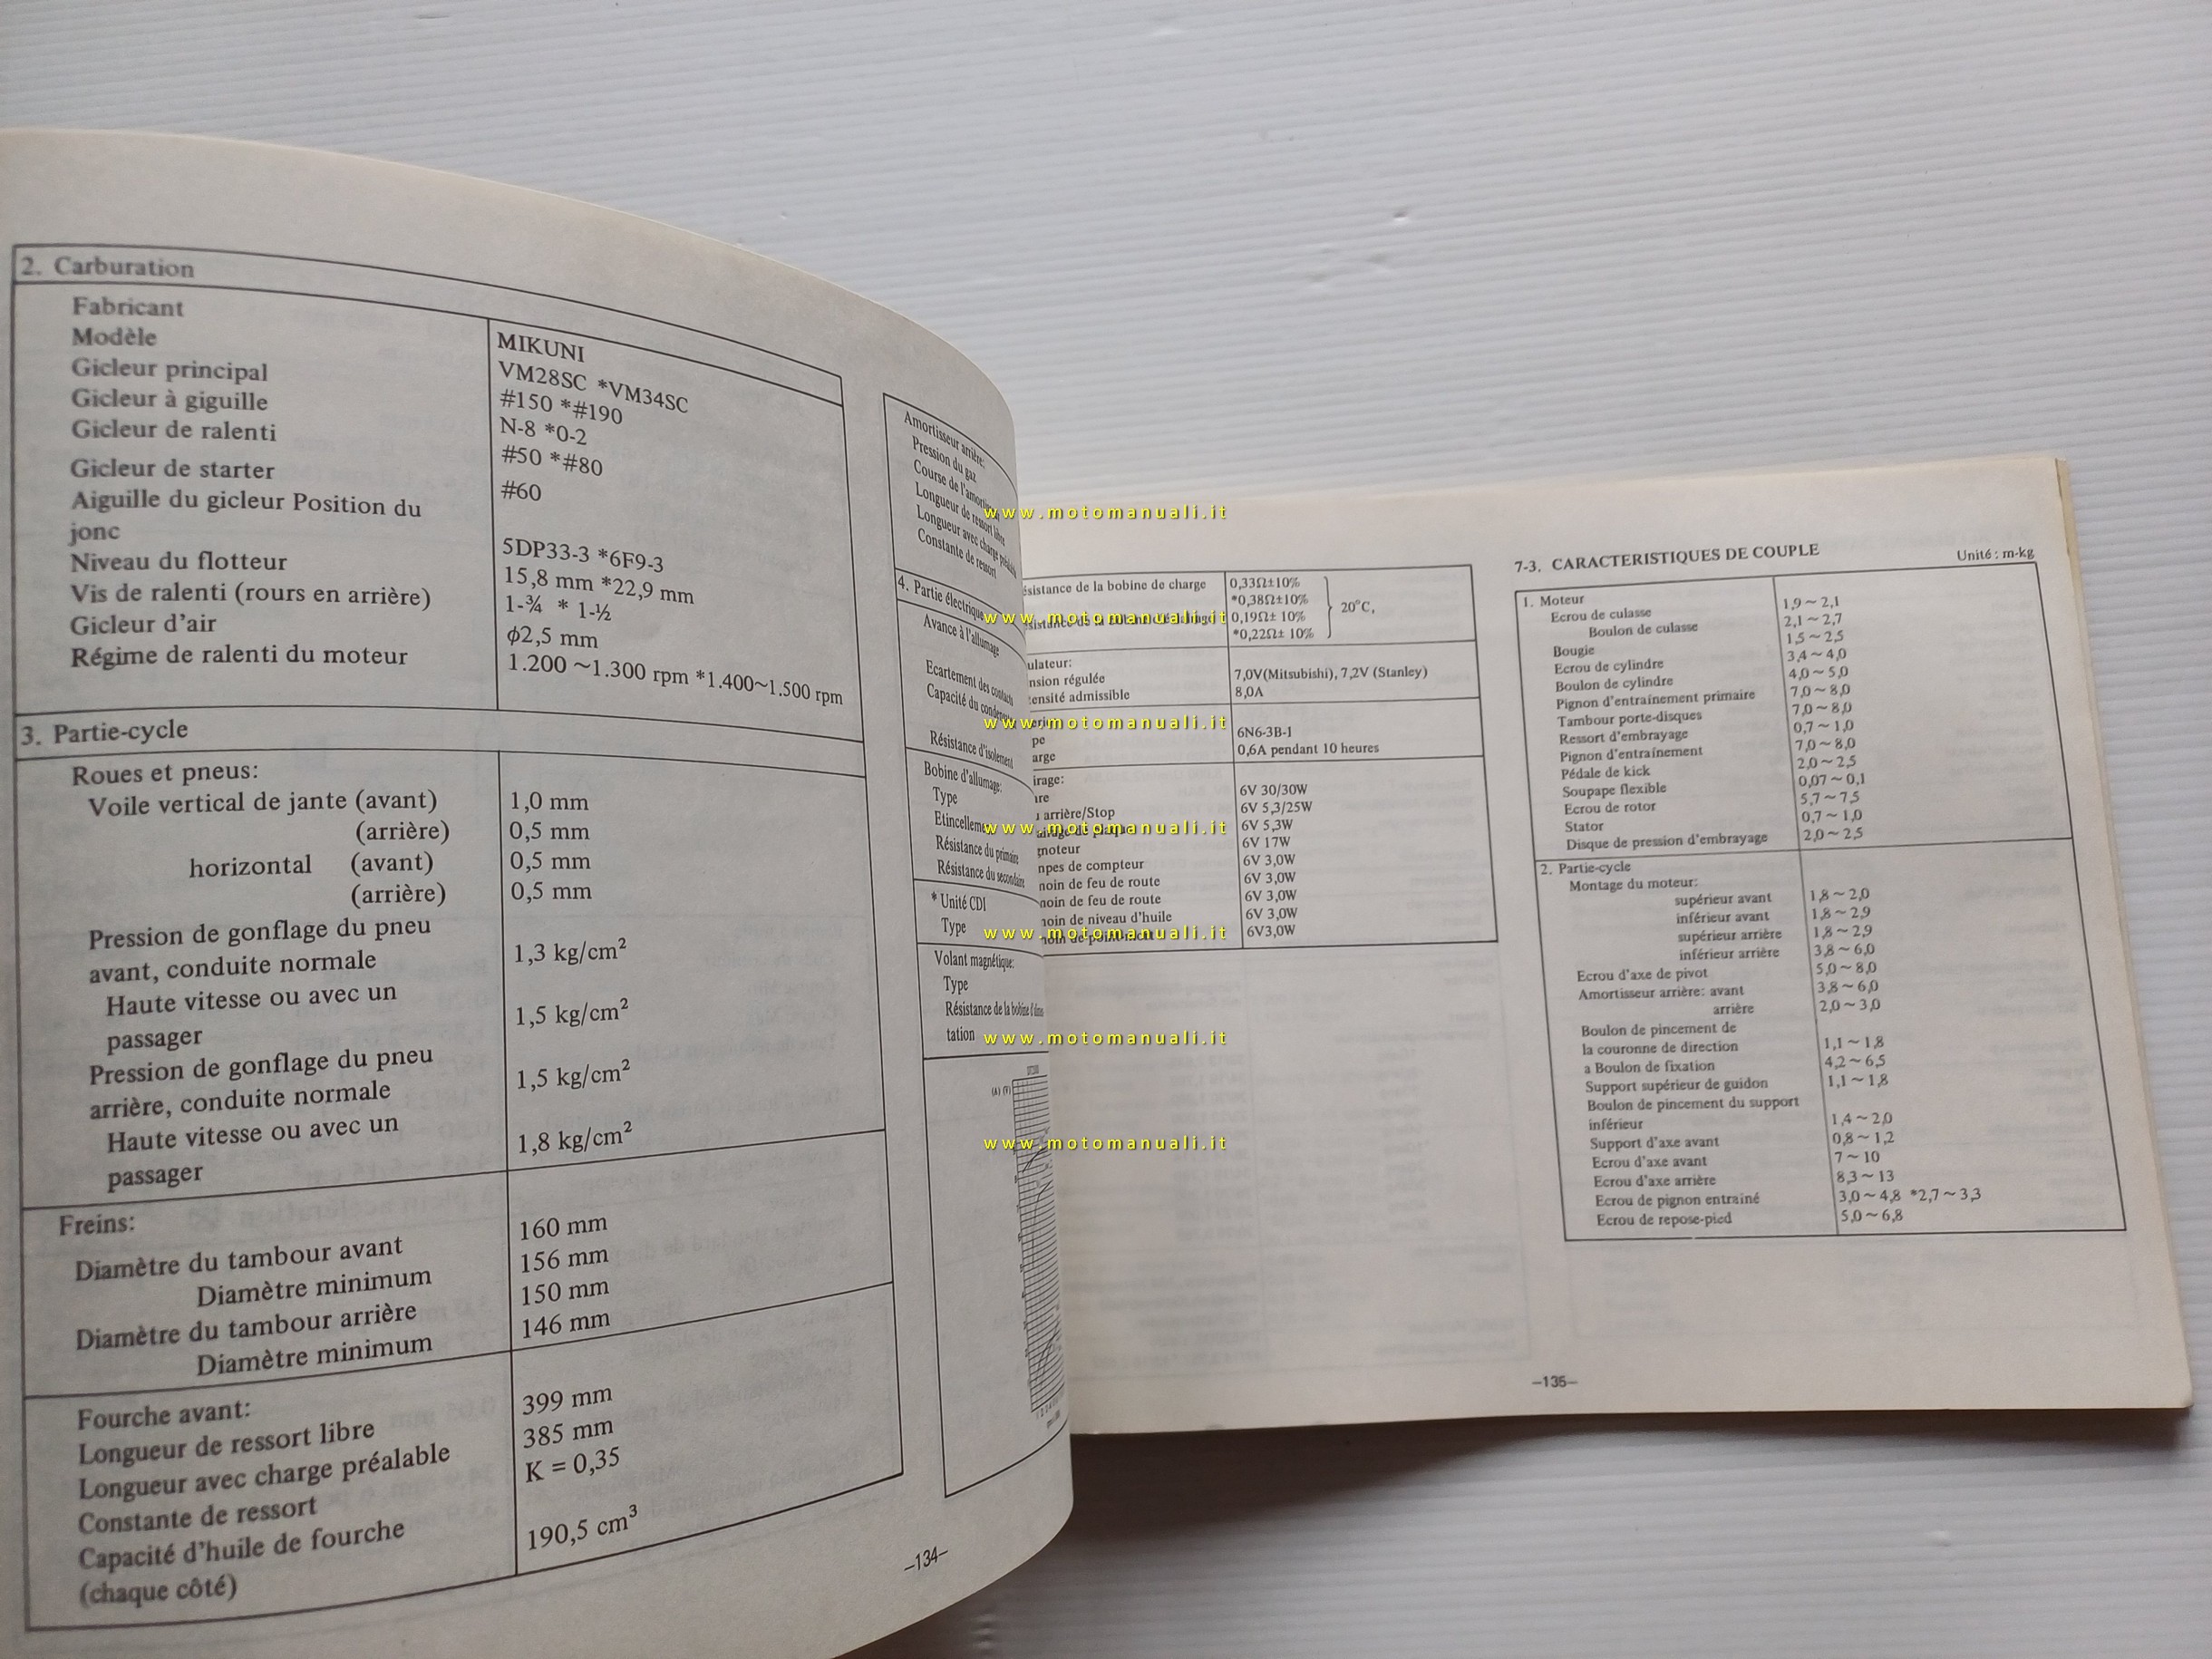 2. Carburation
Fabricant MIKUNI
Modèle VM28SC *VM34SC
Gicleur principal #150 *#190
Gicleur à giguille N-8 *0-2
Gicleur de ralenti #50 *#80
Gicleur de starter #60
Aiguille du gicleur Position du
jonc 5DP33-3 *6F9-3
Niveau du flotteur 15,8 mm *22,9 mm
Vis de ralenti (rours en arrière) 1-¾ * 1-½
Gicleur d'air ϕ2,5 mm
Régime de ralenti du moteur 1.200 ~1.300 rpm *1.400~1.500 rpm
3. Partie-cycle
Roues et pneus:
Voile vertical de jante (avant) 1,0 mm
(arrière) 0,5 mm
horizontal (avant) 0,5 mm
(arrière) 0,5 mm
Pression de gonflage du pneu
avant, conduite normale 1,3 kg/cm²
Haute vitesse ou avec un
passager 1,5 kg/cm²
Pression de gonflage du pneu
arrière, conduite normale 1,5 kg/cm²
Haute vitesse ou avec un
passager 1,8 kg/cm²
Freins:
Diamètre du tambour avant 160 mm
Diamètre minimum 156 mm
Diamètre du tambour arrière 150 mm
Diamètre minimum 146 mm
Fourche avant:
Longueur de ressort libre 399 mm
Longueur avec charge préalable 385 mm
Constante de ressort K = 0,35
Capacité d'huile de fourche
(chaque côté) 190,5 cm³
Amortisseur arrière:
Pression du gaz
Course de l'amortisseur
Longueur de ressort libre
Longueur avec charge préalable
Constante de ressort
4. Partie électrique
Avance à l'allumage
Ecartement des contacts
Capacité du
Résistance d'isolement
Bobine d'allumage:
Type
Etincellement
Résistance du primaire
Résistance du secondaire
* Unité CDI
Type
Volant magnétique:
Type
Résistance de la bobine
tation
–134–
sistance de la bobine de charge 0,33Ω±10%
*0,38Ω±10%
20°C,
0,19Ω± 10%
*0,22Ω± 10%
ulateur:
nsion régulée 7,0V(Mitsubishi), 7,2V (Stanley)
ensité admissible 8,0A
pe 6N6-3B-1
arge 0,6A pendant 10 heures
irage:
re 6V 30/30W
arrière/Stop 6V 5,3/25W
6V 5,3W
moteur 6V 17W
npes de compteur 6V 3,0W
noin de feu de route 6V 3,0W
noin de feu de route 6V 3,0W
noin de niveau d'huile 6V 3,0W
6V3,0W
7-3. CARACTERISTIQUES DE COUPLE
Unité : m-kg
1. Moteur
Ecrou de culasse 1,9 ~ 2,1
Boulon de culasse 2,1 ~ 2,7
Bougie 1,5 ~ 2,5
Ecrou de cylindre 3,4 ~ 4,0
Boulon de cylindre 4,0 ~ 5,0
Pignon d'entraînement primaire 7,0 ~ 8,0
Tambour porte-disques 7,0 ~ 8,0
Ressort d'embrayage 0,7 ~ 1,0
Pignon d'entraînement 7,0 ~ 8,0
Pédale de kick 2,0 ~ 2,5
Soupape flexible 0,07 ~ 0,1
Ecrou de rotor 5,7 ~ 7,5
Stator 0,7 ~ 1,0
Disque de pression d'embrayage 2,0 ~ 2,5
2. Partie-cycle
Montage du moteur:
supérieur avant 1,8 ~ 2,0
inférieur avant 1,8 ~ 2,9
supérieur arrière 1,8 ~ 2,9
inférieur arrière 3,8 ~ 6,0
Ecrou d'axe de pivot 5,0 ~ 8,0
Amortisseur arrière: avant 3,8 ~ 6,0
arrière 2,0 ~ 3,0
Boulon de pincement de
la couronne de direction 1,1 ~ 1,8
a Boulon de fixation 4,2 ~ 6,5
Support supérieur de guidon 1,1 ~ 1,8
Boulon de pincement du support
inférieur 1,4 ~ 2,0
Support d'axe avant 0,8 ~ 1,2
Ecrou d'axe avant 7 ~ 10
Ecrou d'axe arrière 8,3 ~ 13
Ecrou de pignon entraîné 3,0 ~ 4,8 *2,7 ~ 3,3
Ecrou de repose-pied 5,0 ~ 6,8
–135–
www.motomanuali.it
www.motomanuali.it
www.motomanuali.it
www.motomanuali.it
www.motomanuali.it
www.motomanuali.it
www.motomanuali.it